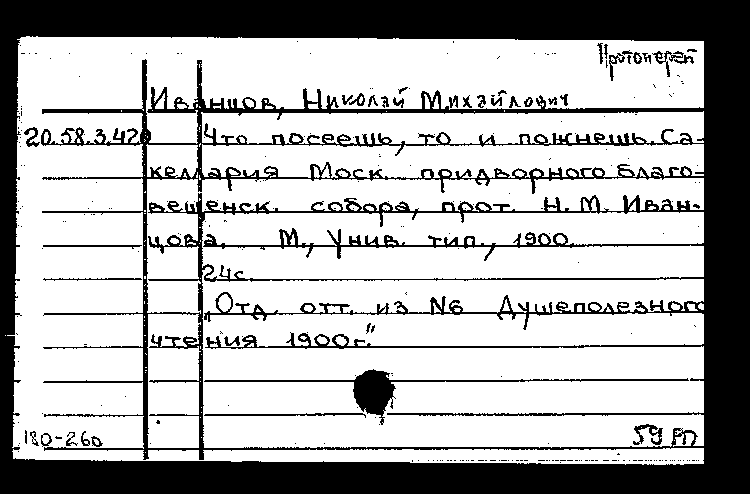 Протоиерей
Иванцов, Николай Михайлович
20.58.3.420 Что посеешь, то и пожнешь. Са-
келлария Моск. придворного Благо-
вещенск. собора, прот. Н. М. Иван-
цова. М., Унив. тип., 1900.
24с.
„Отд. отт. из №6 Душеполезного
чтения 1900г."
180-260 59 РП